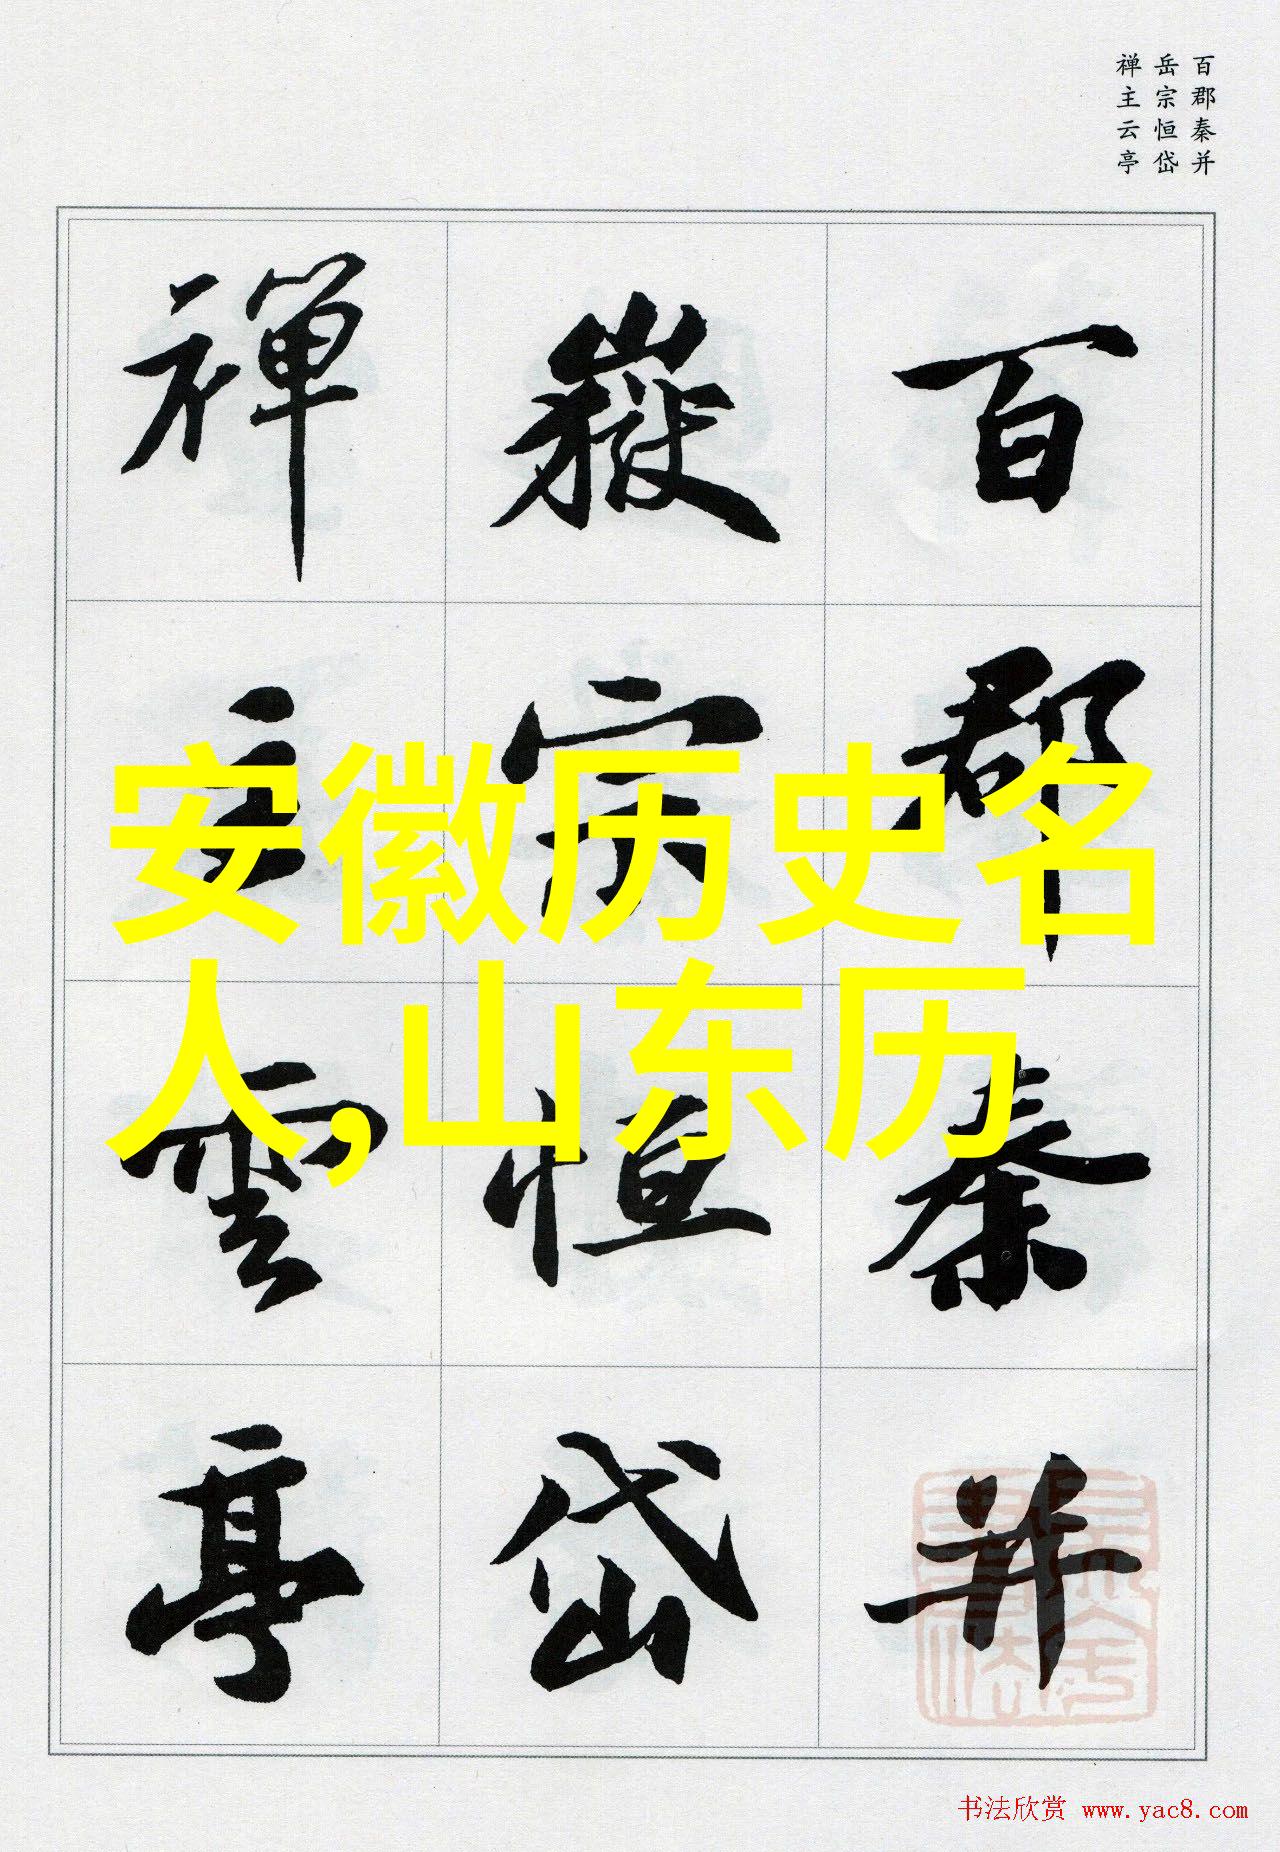 百郡秦并
岳宗恒岱
禅主云亭
百郡秦并
嶽宗恒岱
禅主雲亭
安徽历史名
人,山东历
书法欣赏 www.yac8.com